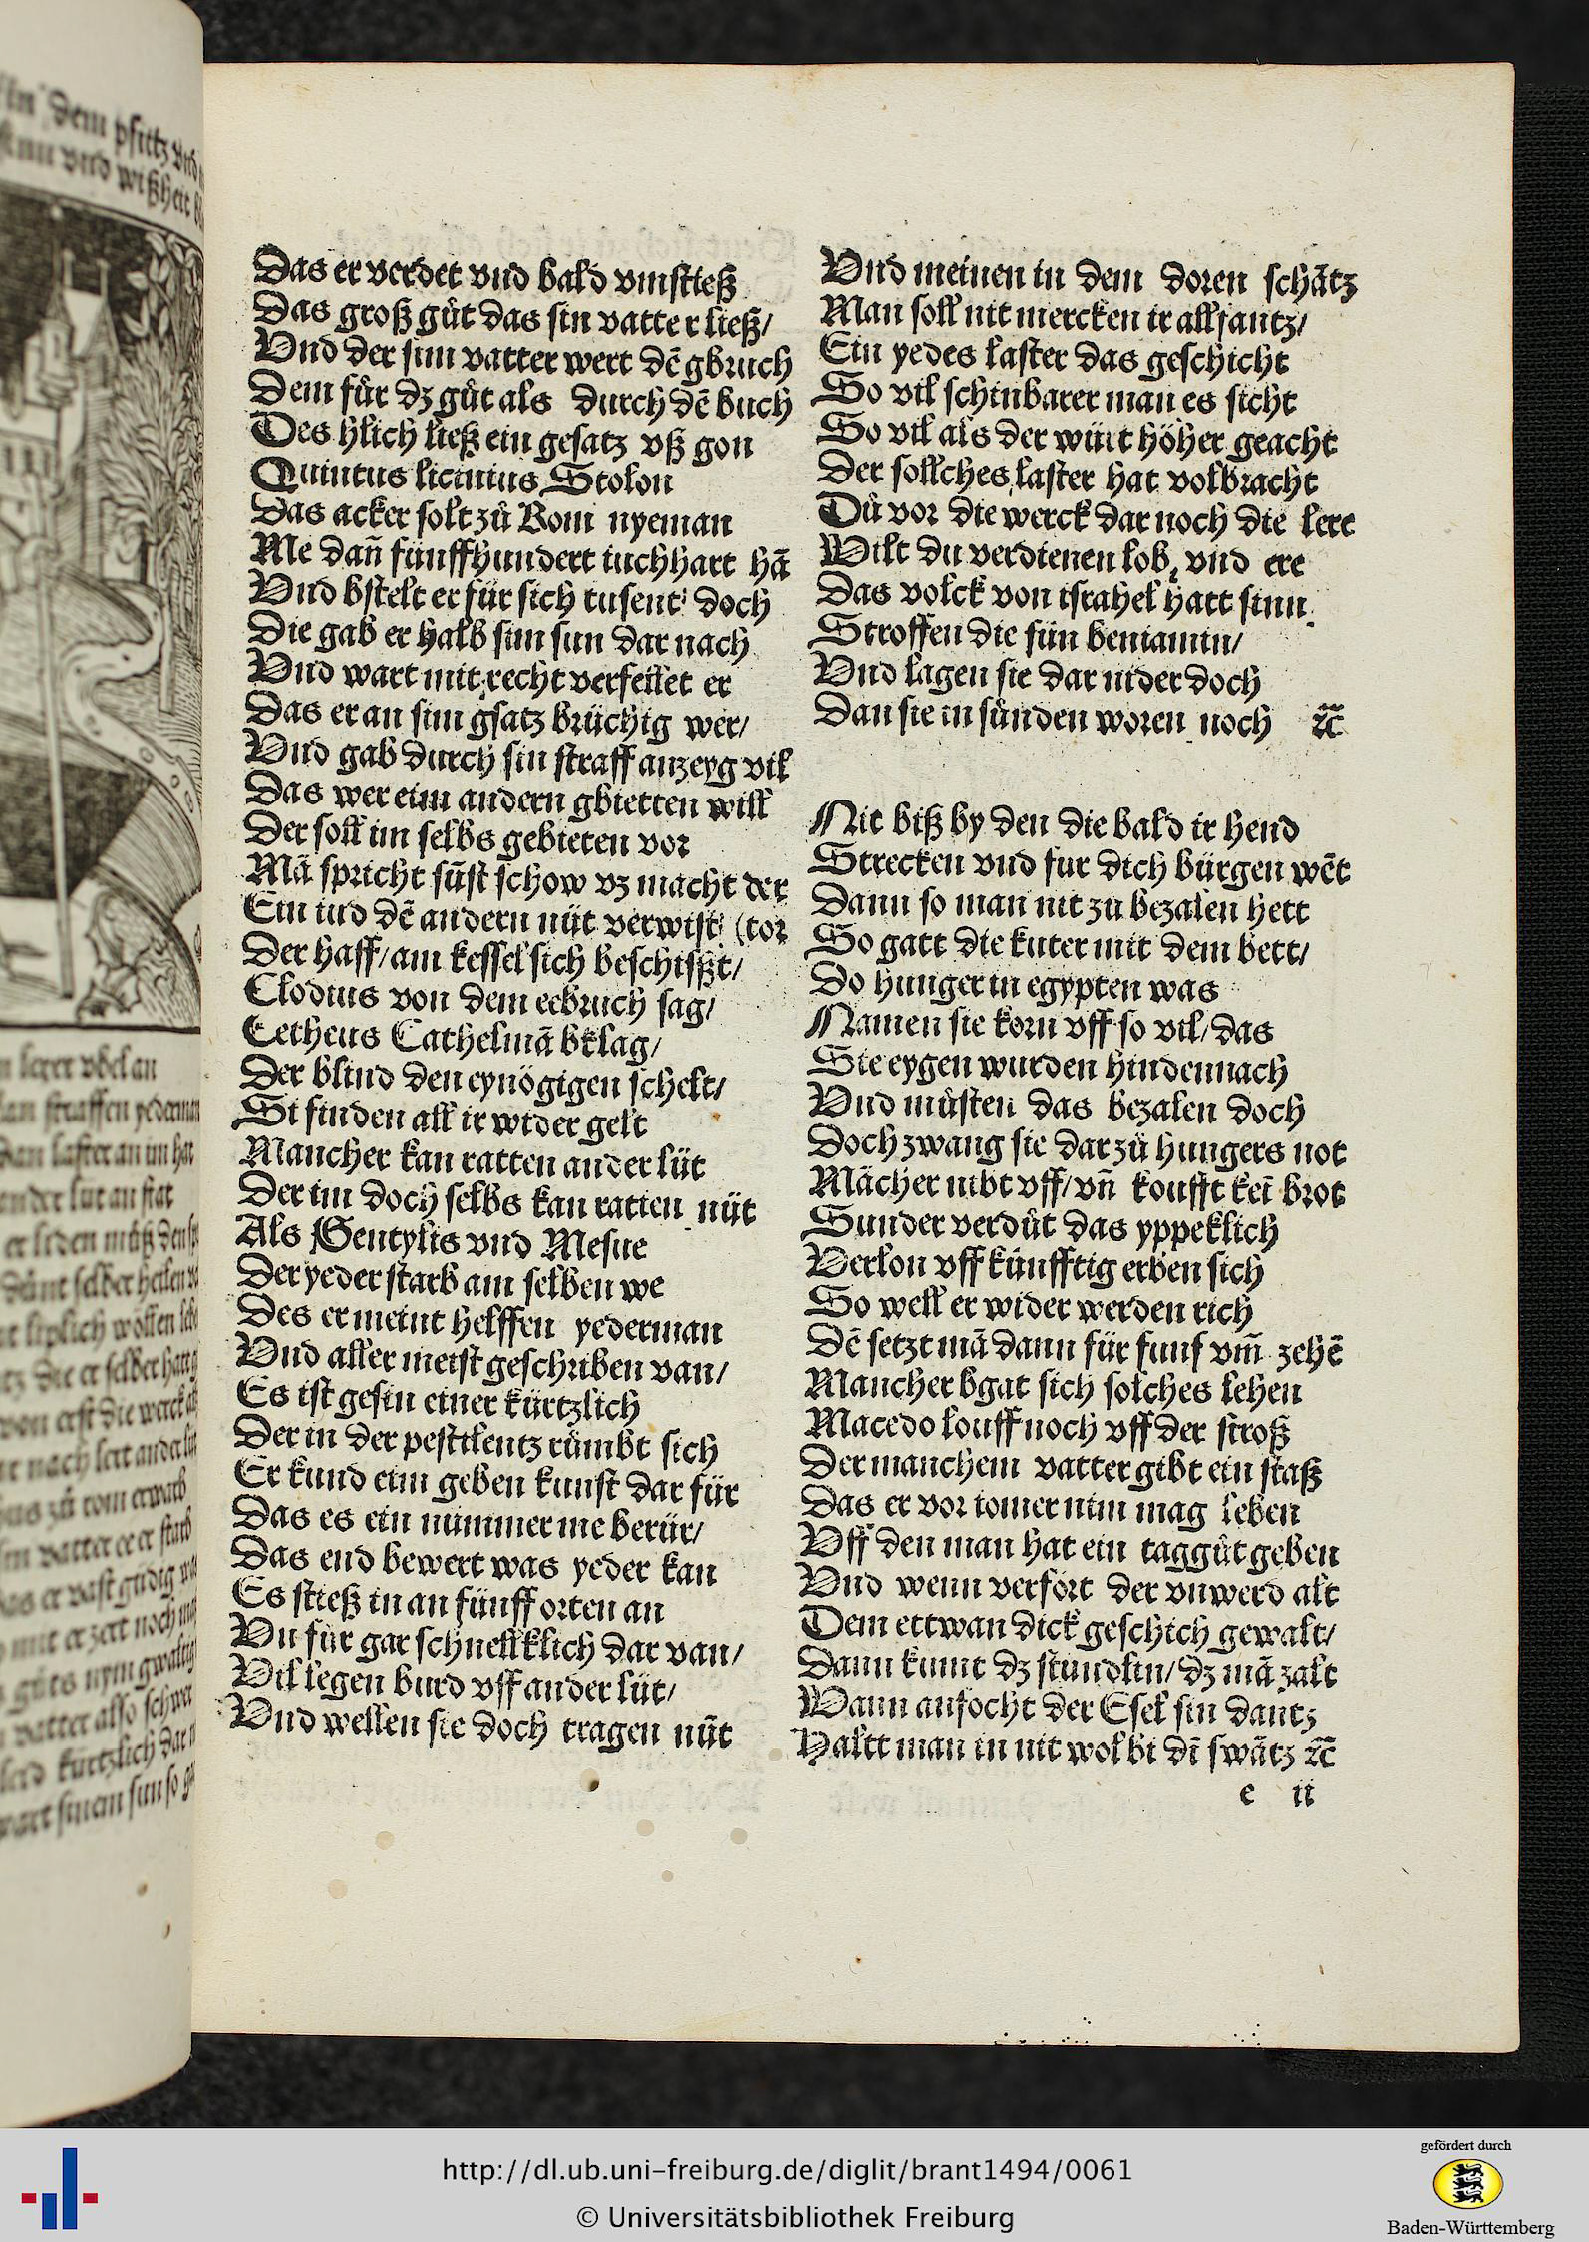 Das er verdet vnd bald vmstieß
Das groß gůt das sin vatte r ließ/
Vnd der sun vatter wert dē gbruch
Dem für dz gůt als durch dē buch
Des hlich ließ ein gesatz vß gon
Quintus licinius Stolon
Das acker solt zů Rom nyeman
Me dañ fünffhundert iuchhart hā
Vnd bstelt er für sich tusent doch
Die gab er halb sim sun dar nach
Vnd wart mit recht verfellet er
Das er an sim gsatz brüchig wer/
Vnd gab durch sin straff anzeyg vil
Das wer eim andern gbietten will
Der soll im selbs gebieten vor
Mā spricht sūst schow vz macht der
Ein iud dē andern nüt verwist (tor
Der haff/am kessel sich beschisßt/
Clodius von dem eebruch sag/
Cetheus Cathelinā bklag/
Der blind den eynögigen schelt/
Si finden all ir wider gelt
Mancher kan ratten ander lüt
Der im doch selbs kan ratten nüt
Als Gentylis vnd Mesue
Der yeder starb am selben we
Des er meint helffen yederman
Vnd aller meist geschriben van/
Es ist gesin einer kürtzlich
Der in der pestilentz růmbt sich
Er kund eim geben kunst dar für
Das es ein nümmer me berür/
Das end bewert was yeder kan
Es stieß in an fünff orten an
Vn für gar schnellklich dar van/
Vil legen burd vff ander lüt/
Vnd wellen sie doch tragen nüt
Vnd meinen in dem doren schātz
Man soll nit mercken ir allfantz/
Ein yedes laster das geschicht
So vil schinbarer man es sicht
So vil als der würt höher geacht
Der sollches laster hat volbracht
Dů vor die werck dar noch die lere
Wilt du verdienen lob, vnd ere
Das volck von israhel hatt sinn
Stroffen die sün beniamin/
Vnd lagen sie dar nider doch
Dan sie in sünden woren noch ꝛc̄
Nit biß by den die bald ir hend
Strecken vnd fur dich bürgen wēt
Dann so man nit zu bezalen hett
So gatt die kuter mit dem bett/
Do hunger in egypten was
Namen sie korn vff so vil/das
Sie eygen wurden hindennach
Vnd müsten das bezalen doch
Doch zwang sie dar zů hungers not
Mācher nibt vff/vñ koufft kei brot
Sunder verdůt das yppeklich
Verlon vff künfftig erben sich
So well er wider werden rich
Dē setzt mā dann für funf vm̄ zehē
Mancher bgat sich solches lehen
Macedo louff noch vff der stroß
Der manchem vatter gibt ein staß
Das er vor iomer nim mag leben
Vff den man hat ein taggůt geben
Vnd wenn verfört der vnwerd alt
Dem ettwan dick geschich gewalt/
Dann kumt dz stündlin/dz mā zalt
Wann anfocht der Esel sin dantz
Haltt man in nit wol bi dī swātz ꝛc̄
e ii
http://dl.ub.uni-freiburg.de/diglit/brant1494/0061
© Universitätsbibliothek Freiburg
gefördert durch
Baden-Württemberg